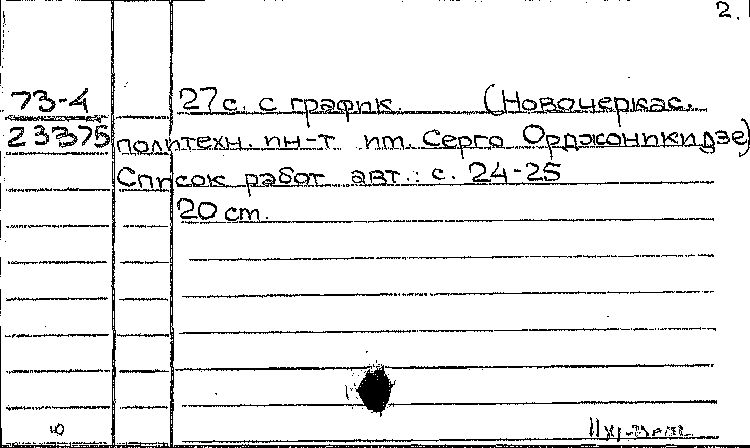 2.
73-4 27 с. с график. (Новочеркас.
23375 политехн. ин-т им. Серго Орджоникидзе)
Список работ авт.: с. 24-25
20 см.
10